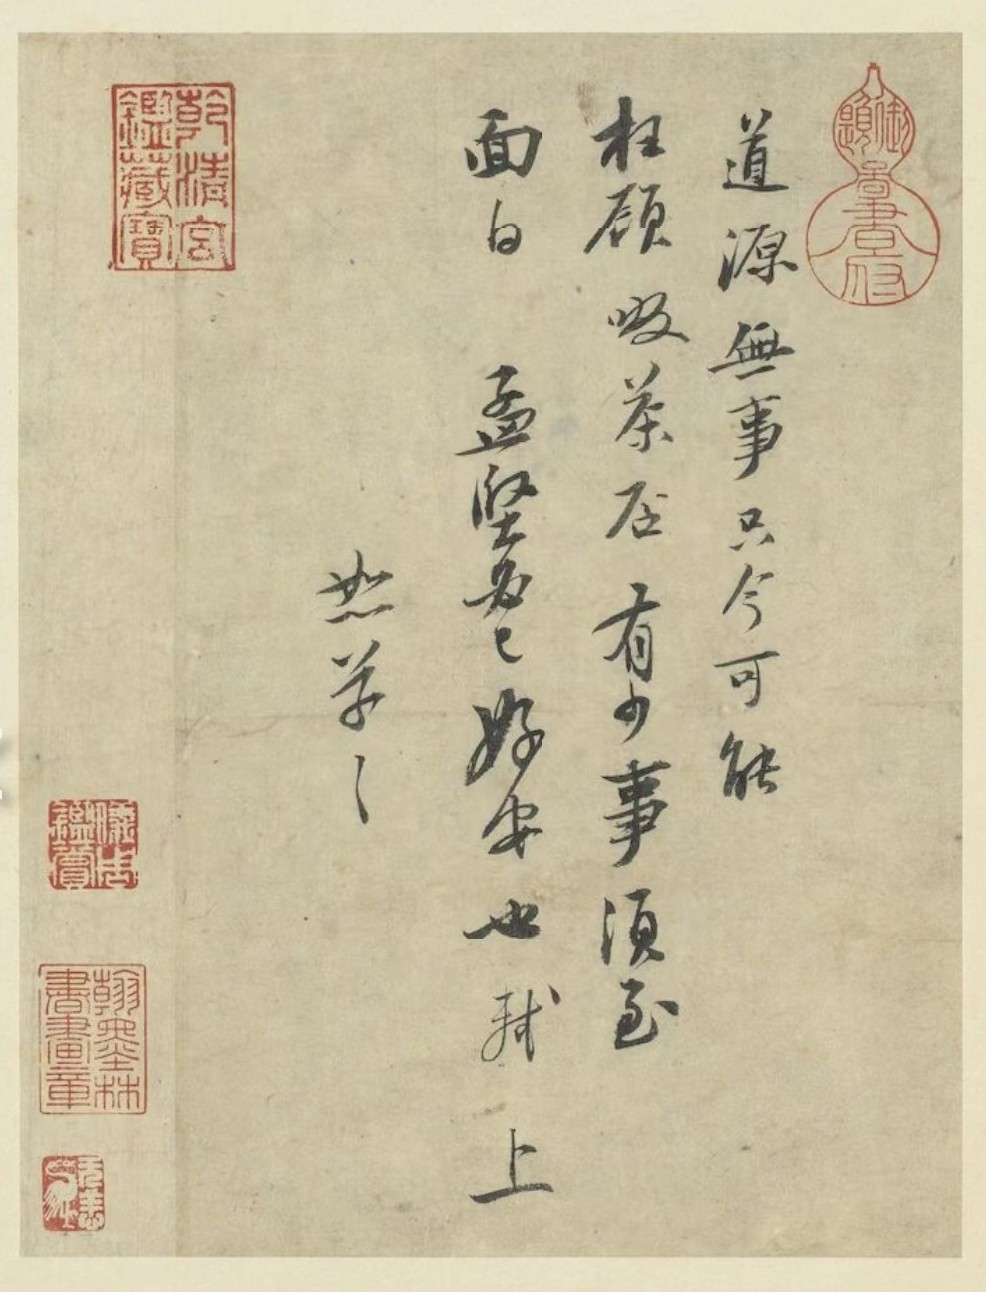 道源無事只今可能
枉顧啜茶否有少事須至
面白孟堅必已好安也軾上
恕草々
乾清宮
鑑藏寶
儀周
鑑賞
翰墨林
書畫章